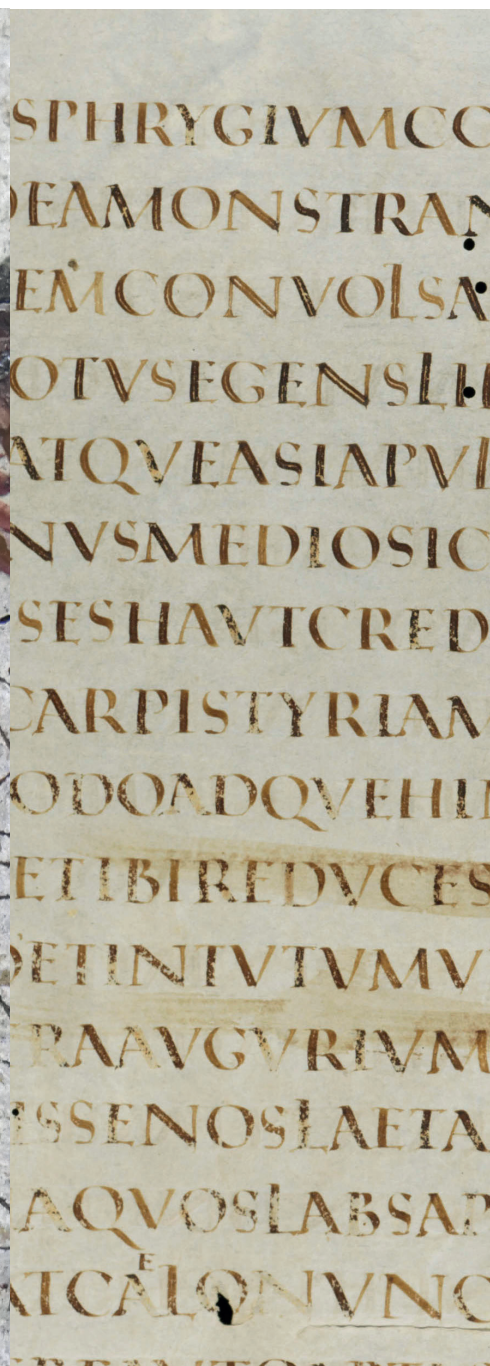 SPHRYGIVMCO
DEAMONSTRAN
EMCONVOLSA
OTVSEGENSLI
ATQVEASIAPVL
NVSMEDIOSIC
SESHAVTCRED
CARPISTYRIAM
ODOADQVEHIN
ETIBIREDVCES
ETINTVTVMV
RAAVGVRIVM
ISSENOSLAETA
AQVOSLABSAP
ATCAELONVNC